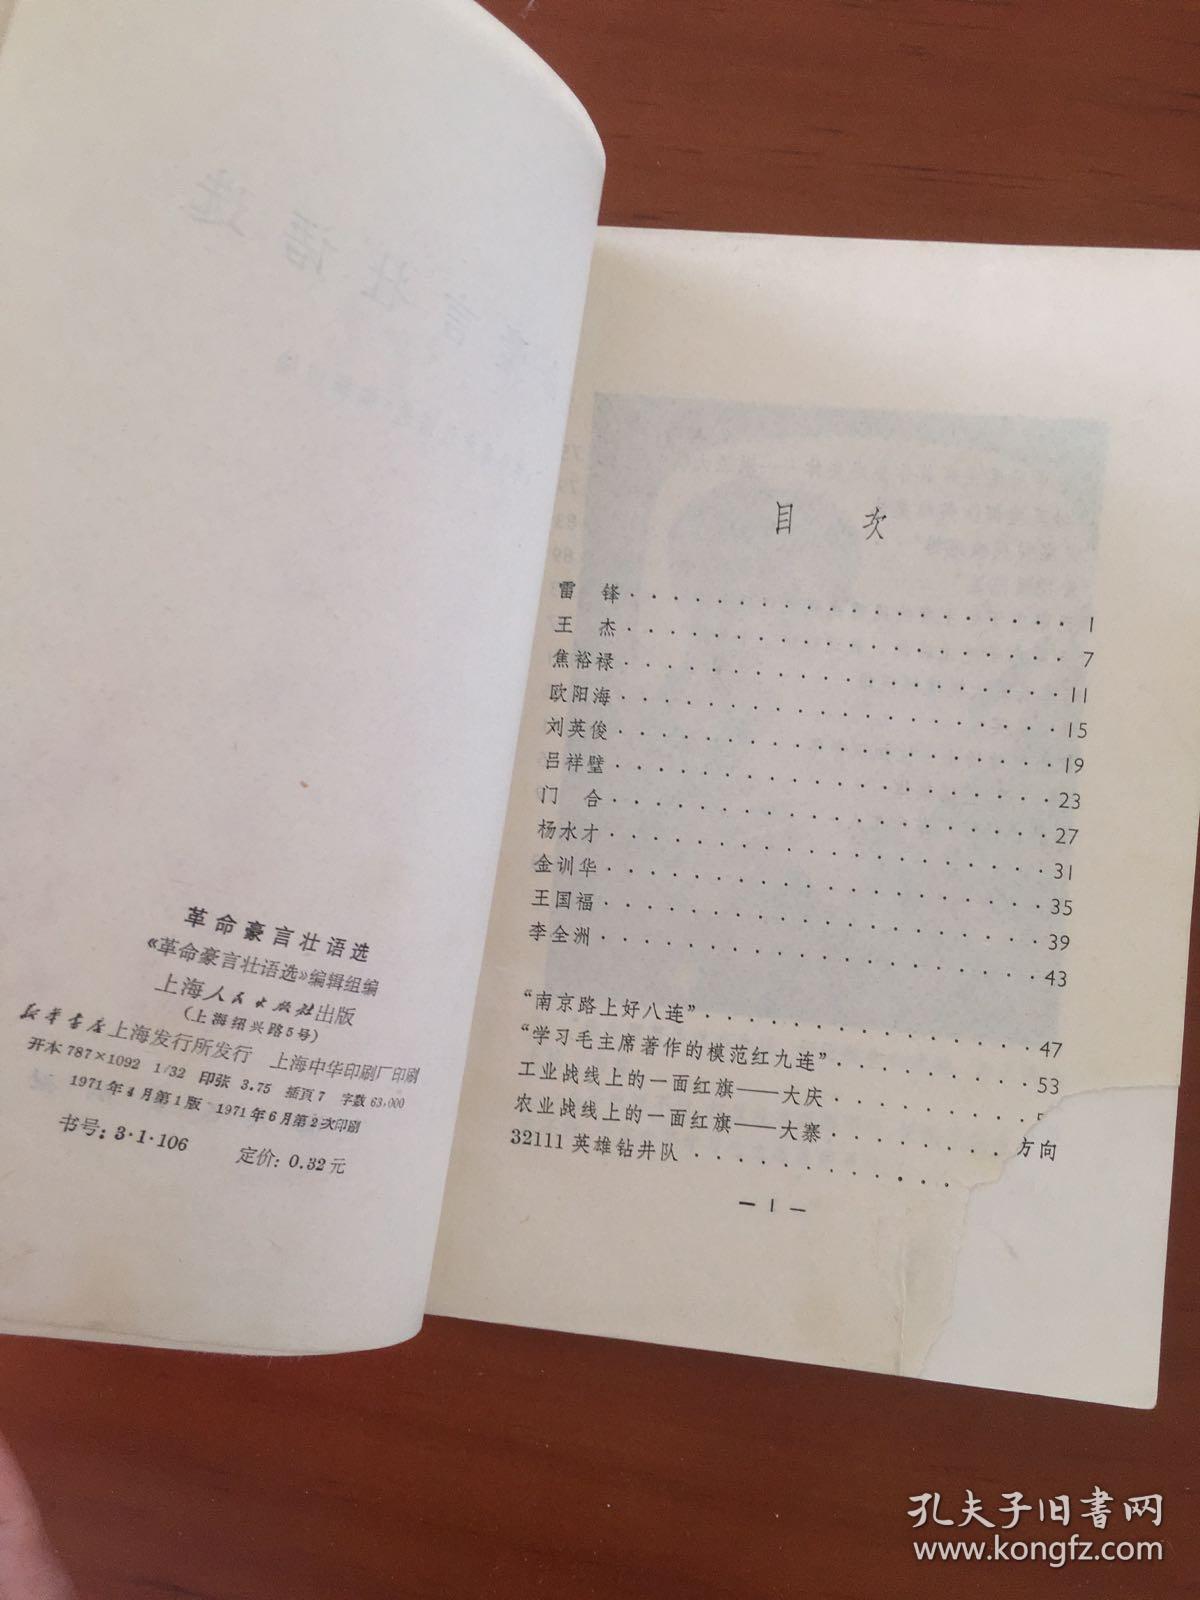 革命豪言壮语选
《革命豪言壮语选》编辑组编
上海人民出版社出版
(上海绍兴路5号)
新华书店上海发行所发行 上海中华印刷厂印刷
开本 787×1092 1/32 印张 3.75 插页 7 字数 63,000
1971年4月第1版 1971年6月第2次印刷
书号: 3·1·106 定价: 0.32元
目 次
雷 锋 1
王 杰 7
焦裕禄 11
欧阳海 15
刘英俊 19
吕祥璧 23
门 合 27
杨水才 31
金训华 35
王国福 39
李全洲 43
“南京路上好八连” 47
“学习毛主席著作的模范红九连” 53
工业战线上的一面红旗——大庆
农业战线上的一面红旗——大寨 方向
32111英雄钻井队
— 1 —
孔夫子旧书网
www.kongfz.com